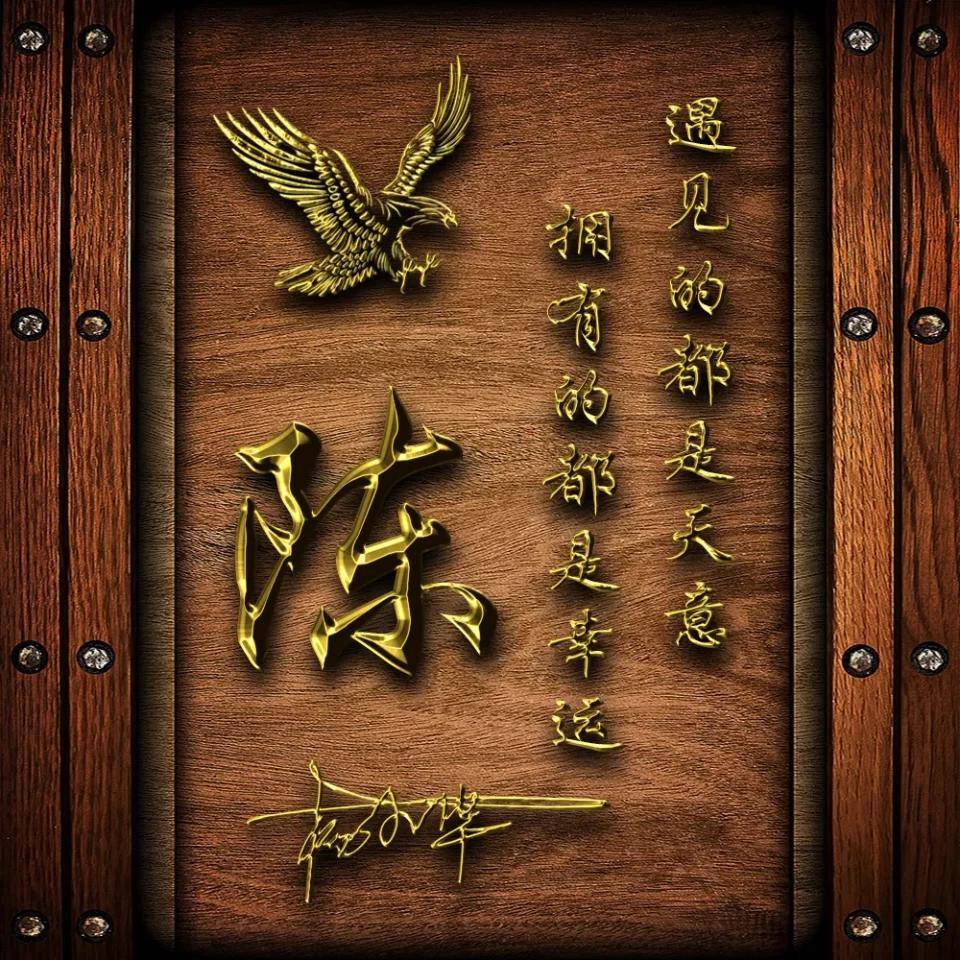 遇见的都是天意
拥有的都是幸运
陈